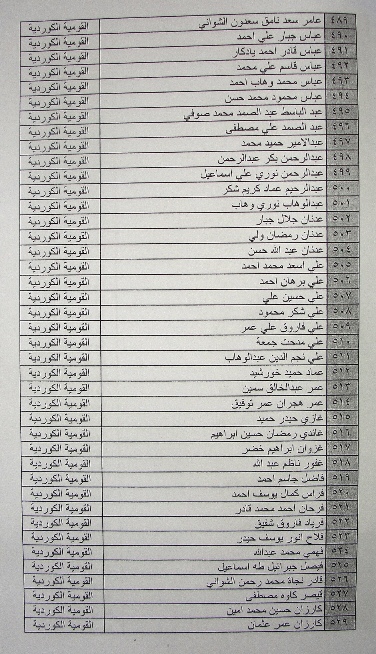 ٤٨٩ عامر سعد نامق سعدون الشواني القومية الكوردية
٤٩٠ عباس جبار علي احمد القومية الكوردية
٤٩١ عباس قادر احمد يادكار القومية الكوردية
٤٩٢ عباس قاسم علي محمد القومية الكوردية
٤٩٣ عباس محمد وهاب احمد القومية الكوردية
٤٩٤ عباس محمود محمد حسن القومية الكوردية
٤٩٥ عبد الباسط عبد الصمد محمد صوفي القومية الكوردية
٤٩٦ عبد الصمد علي مصطفى القومية الكوردية
٤٩٧ عبدالامير حميد محمد القومية الكوردية
٤٩٨ عبدالرحمن بكر عبدالرحمن القومية الكوردية
٤٩٩ عبدالرحمن نوري علي اسماعيل القومية الكوردية
٥٠٠ عبدالرحيم عماد كريم شكر القومية الكوردية
٥٠١ عبدالوهاب نوري وهاب القومية الكوردية
٥٠٢ عدنان جلال جبار القومية الكوردية
٥٠٣ عدنان رمضان ولي القومية الكوردية
٥٠٤ عدنان عبد الله حسن القومية الكوردية
٥٠٥ علي اسعد محمد احمد القومية الكوردية
٥٠٦ علي برهان احمد القومية الكوردية
٥٠٧ علي حسين علي القومية الكوردية
٥٠٨ علي شكر محمود القومية الكوردية
٥٠٩ علي فاروق علي عمر القومية الكوردية
٥١٠ علي مدحت جمعة القومية الكوردية
٥١١ علي نجم الدين عبدالوهاب القومية الكوردية
٥١٢ عماد حميد خورشيد القومية الكوردية
٥١٣ عمر عبدالخالق سمين القومية الكوردية
٥١٤ عمر هجران عمر توفيق القومية الكوردية
٥١٥ غازي حيدر حميد القومية الكوردية
٥١٦ غاندي رمضان حسين ابراهيم القومية الكوردية
٥١٧ غزوان ابراهيم خضر القومية الكوردية
٥١٨ غفور ناظم عبد الله القومية الكوردية
٥١٩ فاضل جاسم احمد القومية الكوردية
٥٢٠ فراس كمال يوسف احمد القومية الكوردية
٥٢١ فرحان احمد محمد قادر القومية الكوردية
٥٢٢ فرياد فاروق شفيق القومية الكوردية
٥٢٣ فلاح انور يوسف حيدر القومية الكوردية
٥٢٤ فهمي محمد عبدالله القومية الكوردية
٥٢٥ فيصل جبرائيل طه اسماعيل القومية الكوردية
٥٢٦ قادر نجاة محمد رحمن الشواني القومية الكوردية
٥٢٧ قيصر كاوه مصطفى القومية الكوردية
٥٢٨ كارزان حسين محمد امين القومية الكوردية
٥٢٩ كارزان عمر عثمان القومية الكوردية